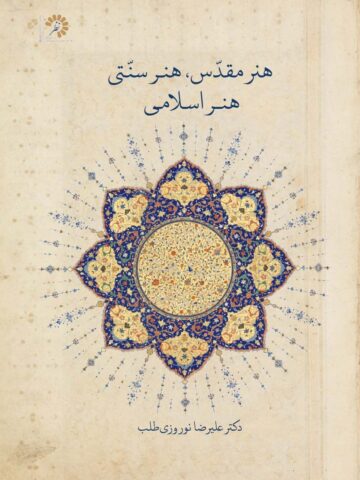 هنر مقدّس، هنر سنّتی
هنر اسلامی
دکتر علیرضا نوروزی‌طلب